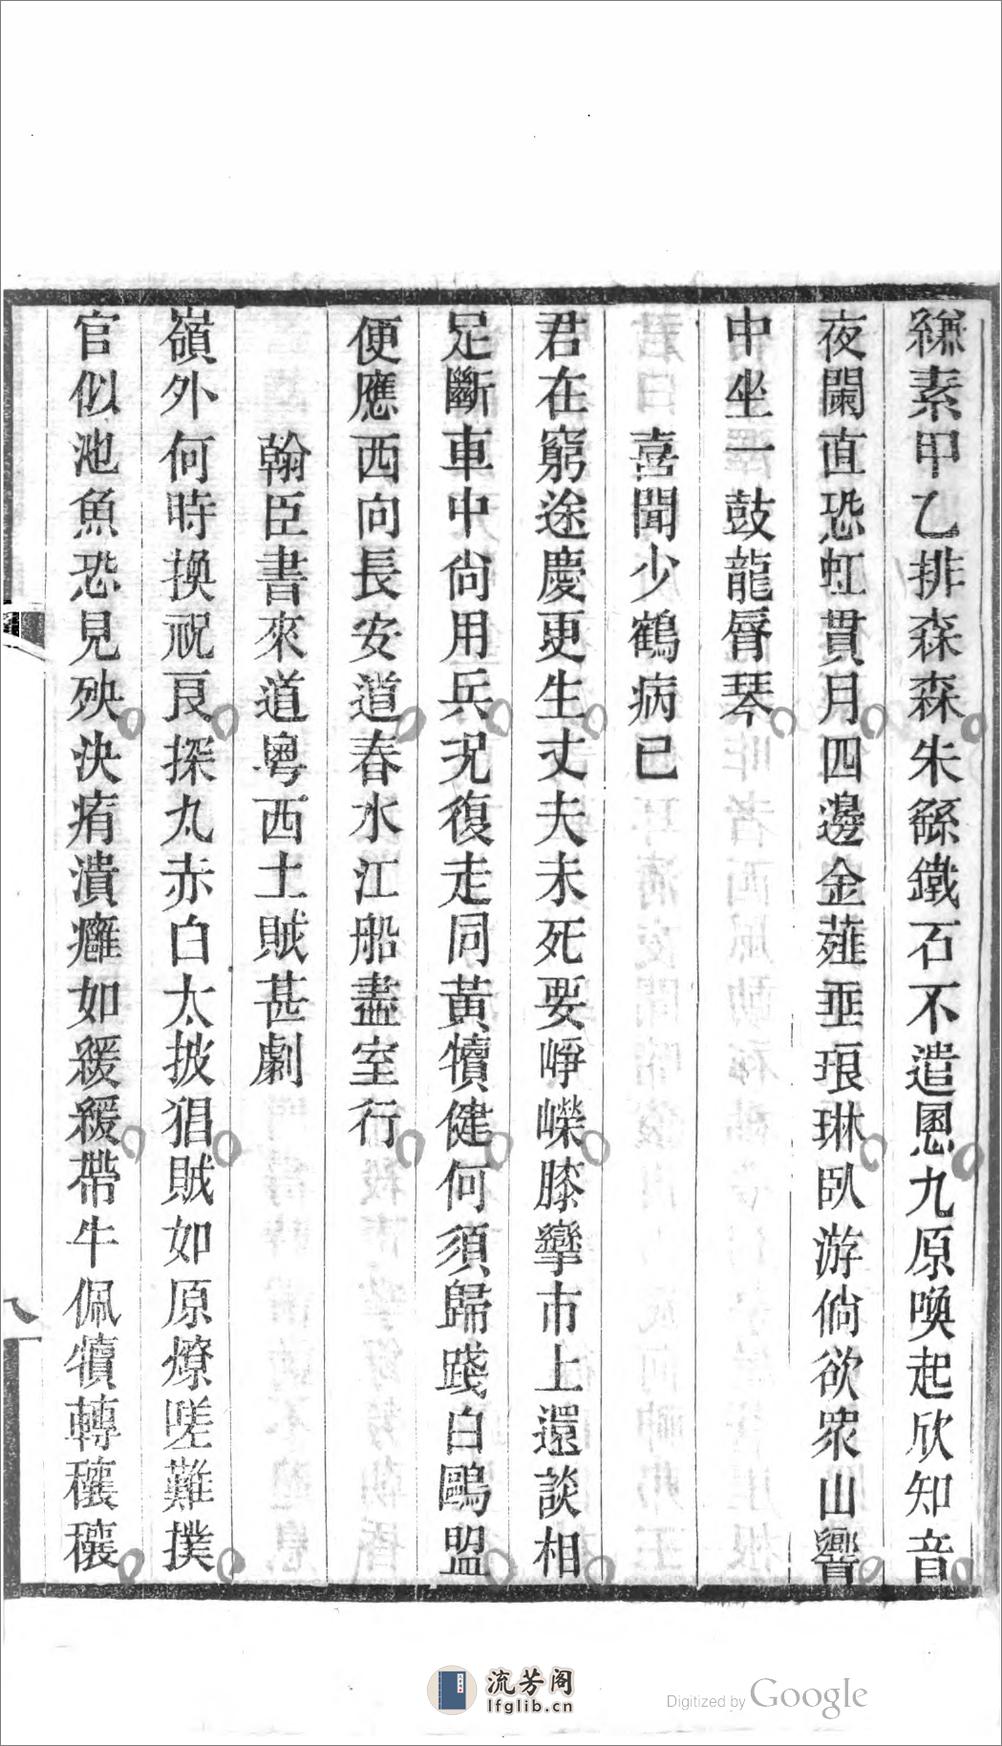 縑素甲乙排森森朱繇鐵石不遣恩九原喚起欣知音
夜闌直恐虹貫月四邊金薤垂琅琳臥游倘欲衆山響
中坐一鼓龍脣琴
喜聞少鶴病已
君在窮途慶更生丈夫未死要崢嶸膝攣市上還談相
足斷車中尙用兵況復走同黃犢健何須歸踐白鷗盟
便應西向長安道春水江船盡室行
翰臣書來道粵西土賊甚劇
嶺外何時換祝良探丸赤白太披猖賊如原燎嗟難撲
官似池魚恐見殃決疛潰癰如緩緩帶牛佩犢轉穰穰
八
流芳阁
lfglib.cn
Digitized by Google